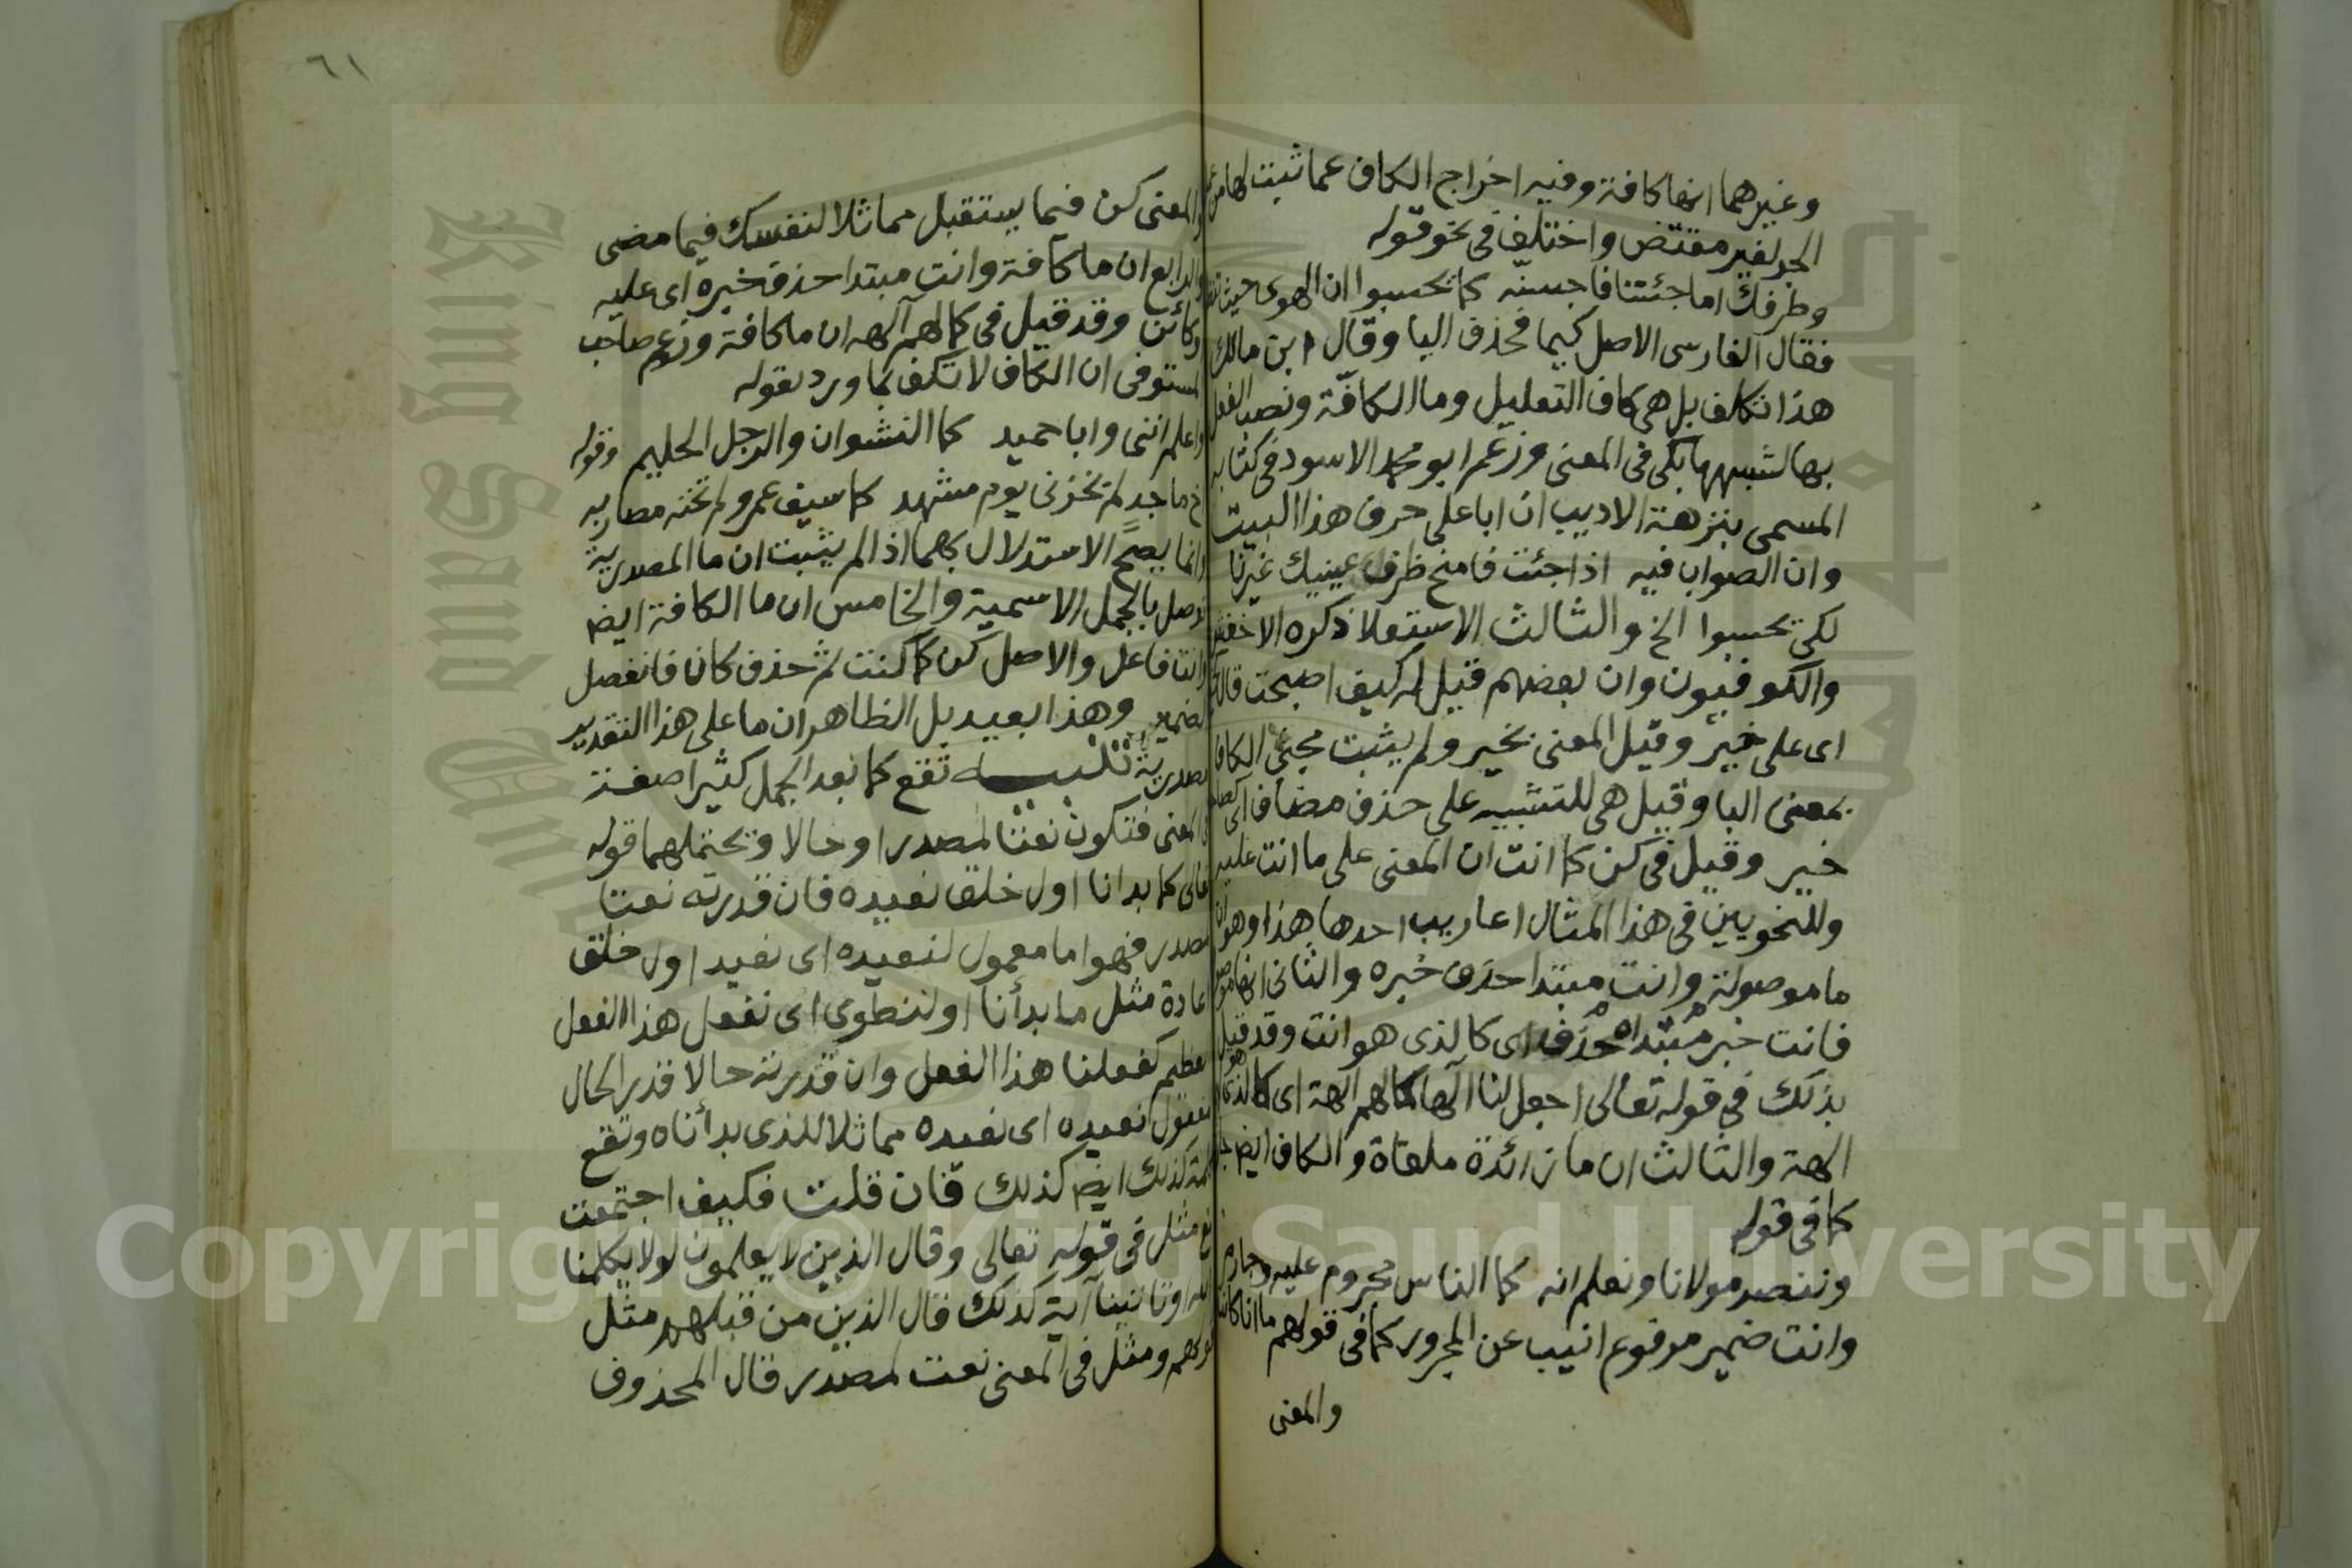 وغيرهما انها كافة وفيه اخراج الكاف عما ثبت لها من
الجر لغير مقتض واختلف في نحو قوله
وطرفك اما جئتنا فاحبسنه كما تحسبوا ان الهوى حيث
فقال الفارسى الاصل كيما فحذف اليا وقال ابن مالك
هذا تكلف بل هى كاف التعليل وما الكافة ونصب الفعل
بها لشبهها بكى فى المعنى وزعم ابو محمد الاسود فى كتابه
المسمى بنزهة الاديب ان ابا على حرف هذا البيت
وان الصواب فيه اذا جئت فامنح طرف عينيك غيرنا
لكى تحسبوا الخ والثالث الاستعلا ذكره الاخفش
والكوفيون وان بعضهم قيل له كيف اصبحت قال
اى على خير وقيل المعنى بخير ولم يثبت مجئ الكاف
بمعنى البا وقيل هى للتشبيه على حذف مضاف اى
خير وقيل فى كن كما انت ان المعنى على ما انت عليه
وللنحويين فى هذا المثال اعاريب احدها هذا وهو ان
ما موصولة وانت مبتدا حذف خبره والثانى انها
فانت خبر مبتداه حذف اى كالذى هو انت وقد قيل
بذلك فى قوله تعالى اجعل لنا الها كما لهم الهة اى كالذى هو
الهة والثالث ان ما زائدة ملغاة والكاف ايض
كما فى قوله
وننصر مولانا ونعلم انه كما الناس مجروم عليه وجارم
وانت ضمير مرفوع انيب عن المجرور كما فى قولهم ما انا كانت
والمعنى
٦١
والمعنى كن فيما يستقبل مماثلا لنفسك فيما مضى
والرابع ان ما كافة وانت مبتدا حذف خبره اى عليه
وكائن وقد قيل فى كما لهم آلهه ان ما كافة وزعم صاحب
المستوفى ان الكاف لا تكف بما ورد بقوله
واعلم اننى وابا حميد كما النشوان والرجل الحليم وقوله
اخ ماجد لم يخزنى يوم مشهد كما سيف عمرو لم تخنه مضاربه
وانما يصح الاستدلال بهما اذا لم يثبت ان ما المصدرية
توصل بالجمل الاسمية والخامس ان ما الكافة ايض
وانت فاعل والاصل كن كما كنت ثم حذف كان فانفصل
الضمير وهذا بعيد بل الظاهر ان ما على هذا التقدير
مصدرية تنبيه تقع كما بعد الجمل كثيرا صفة
فى المعنى فتكون نعتا لمصدر او حالا ويحتملهما قوله
تعالى كما بدانا اول خلق نعيده فان قدرته نعتا
لمصدر فهو اما معمول لنعيده اى نعيد اول خلق
اعادة مثل ما بدأنا او لنطوى اى نفعل هذا الفعل
العظيم كفعلنا هذا الفعل وان قدرته حالا فذو الحال
مفعول نعيده اى نعيده مماثلا للذى بدأناه وتقع
كلمة كذلك ايض كذلك فان قلت فكيف اجتمعت
مع مثل فى قوله تعالى وقال الذين لا يعلمون لولا يكلمنا
الله او تاتينا آية كذلك قال الذين من قبلهم مثل
قولهم ومثل فى المعنى نعت لمصدر قال المحذوف
Copyright © King Saud University